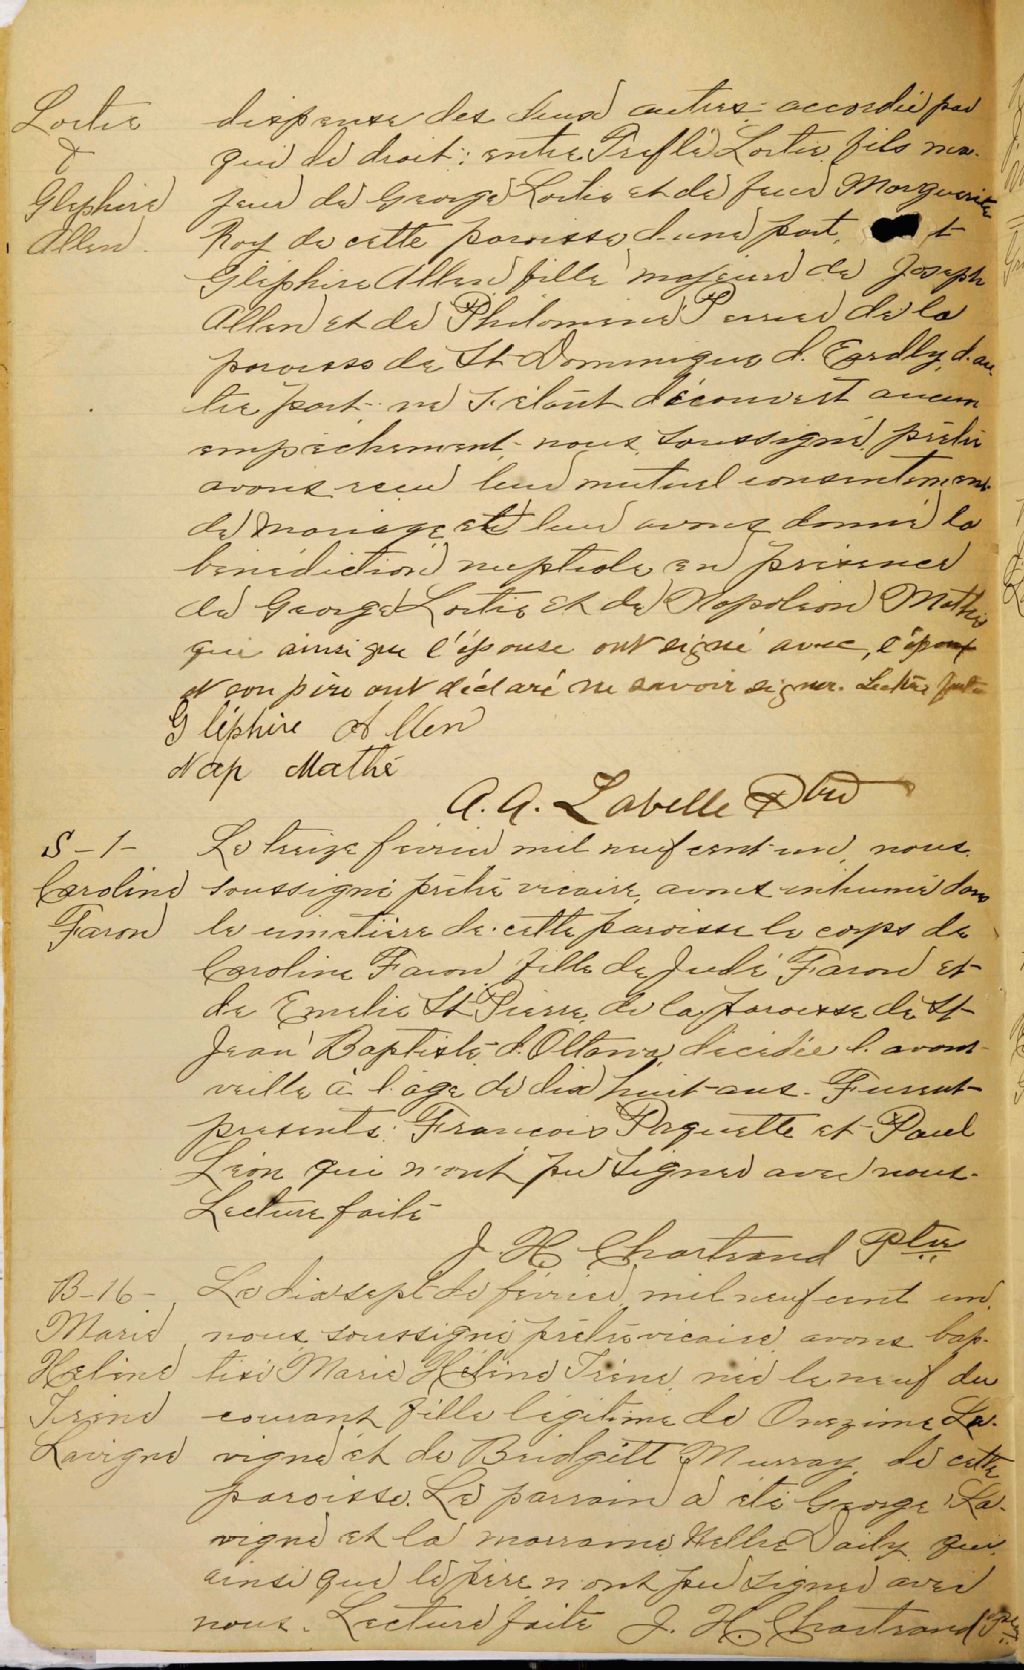 Lortie
&
Glephire
Allen
dispense des deux autres accordée par
qui de droit: entre Trefflé Lortie fils ma-
jeur de George Lortie et de feue Marguerite
Roy de cette paroisse d'une part, et
Glephire Allen fille majeure de Joseph
Allen et de Philomene Perrier de la
paroisse de St Dominique d'Eardly, d'au
tre part ne s'étant découvert aucun
empêchement, nous soussigné, prêtre
avons reçu leur mutuel consentement
de mariage et leur avons donné la
bénédiction nuptiale en présence
de George Lortie et de Napoleon Mathé
qui ainsi que l'épouse ont signé avec, l'époux
et son père ont déclaré ne savoir signer. Lecture faite
Gléphire Allen
Nap Mathé
A. A. Labelle Ptre
S-1-
Caroline
Faron
Le treize fevrier mil neuf cent un, nous
soussigné prêtre vicaire, avons inhumé dans
le cimetière de cette paroisse le corps de
Caroline Faron fille de Jude Faron et
de Emelie St Pierre, de la paroisse de St
Jean Baptiste d'Ottawa décédée l'avant
veille à l'âge de dix huit ans. Furent
presents: Francois Paquette et Paul
Léon qui n'ont pu signer avec nous.
Lecture faite
J. H. Chartrand Ptre
B-16-
Marie
Heline
Irene
Lavigne
Le dixsept de février mil neuf cent un,
nous, soussigné prêtre vicaire, avons bap-
tisé Marie Héline Iréne, née le neuf du
courant fille légitime de Onezime La-
vigne et de Bridgitt Murray, de cette
paroisse. Le parrain a été George La-
vigne et la marraine Nellie Daily qui,
ainsi que le père n'ont pu signer avec
nous. Lecture faite J. H. Chartrand Ptre